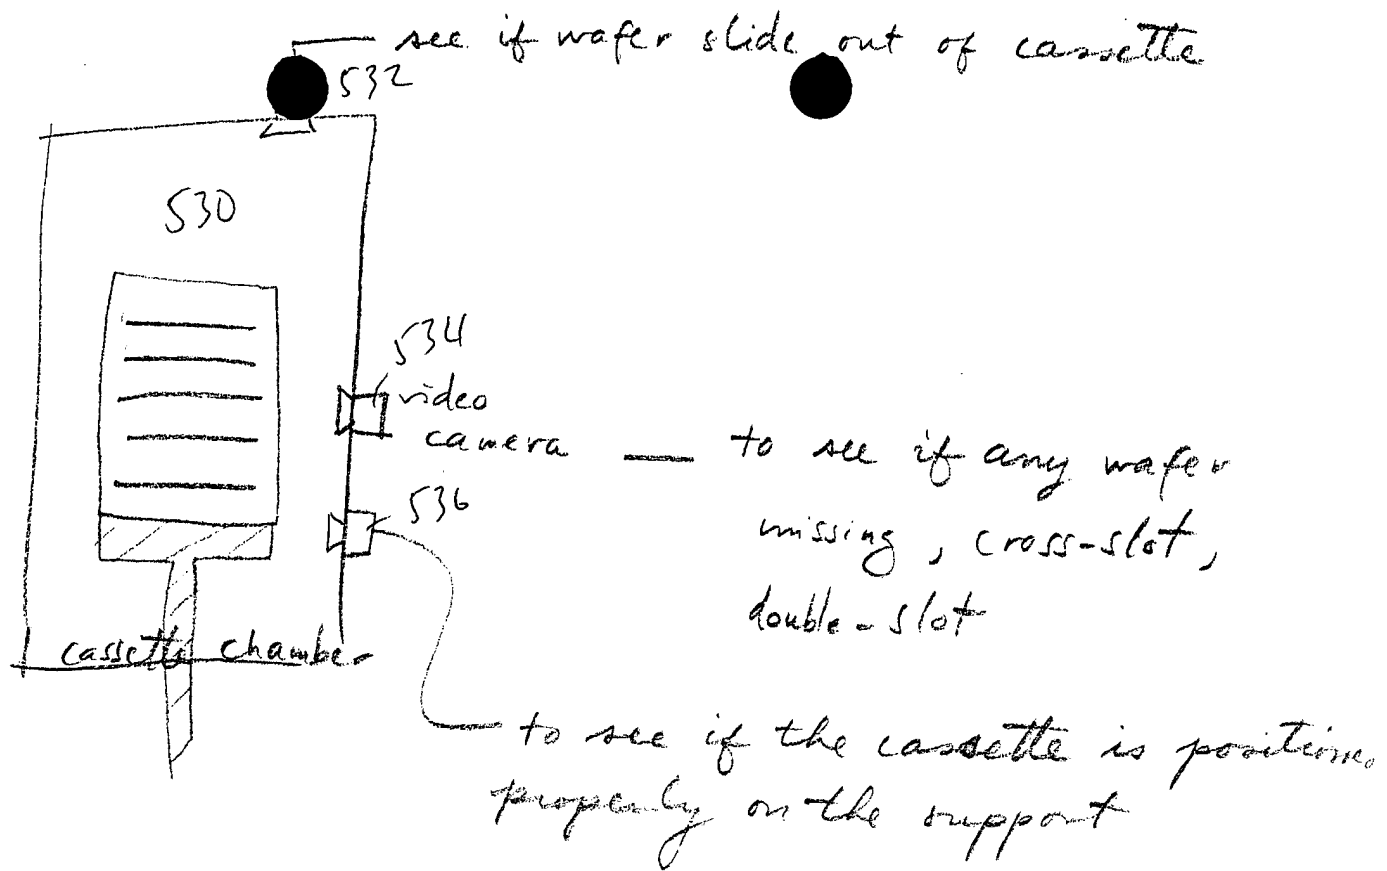 see if wafer slide out of cassette
532
530
534
video
camera — to see if any wafer
missing, cross-slot,
double-slot
536
cassette chamber
to see if the cassette is positione
properly on the support